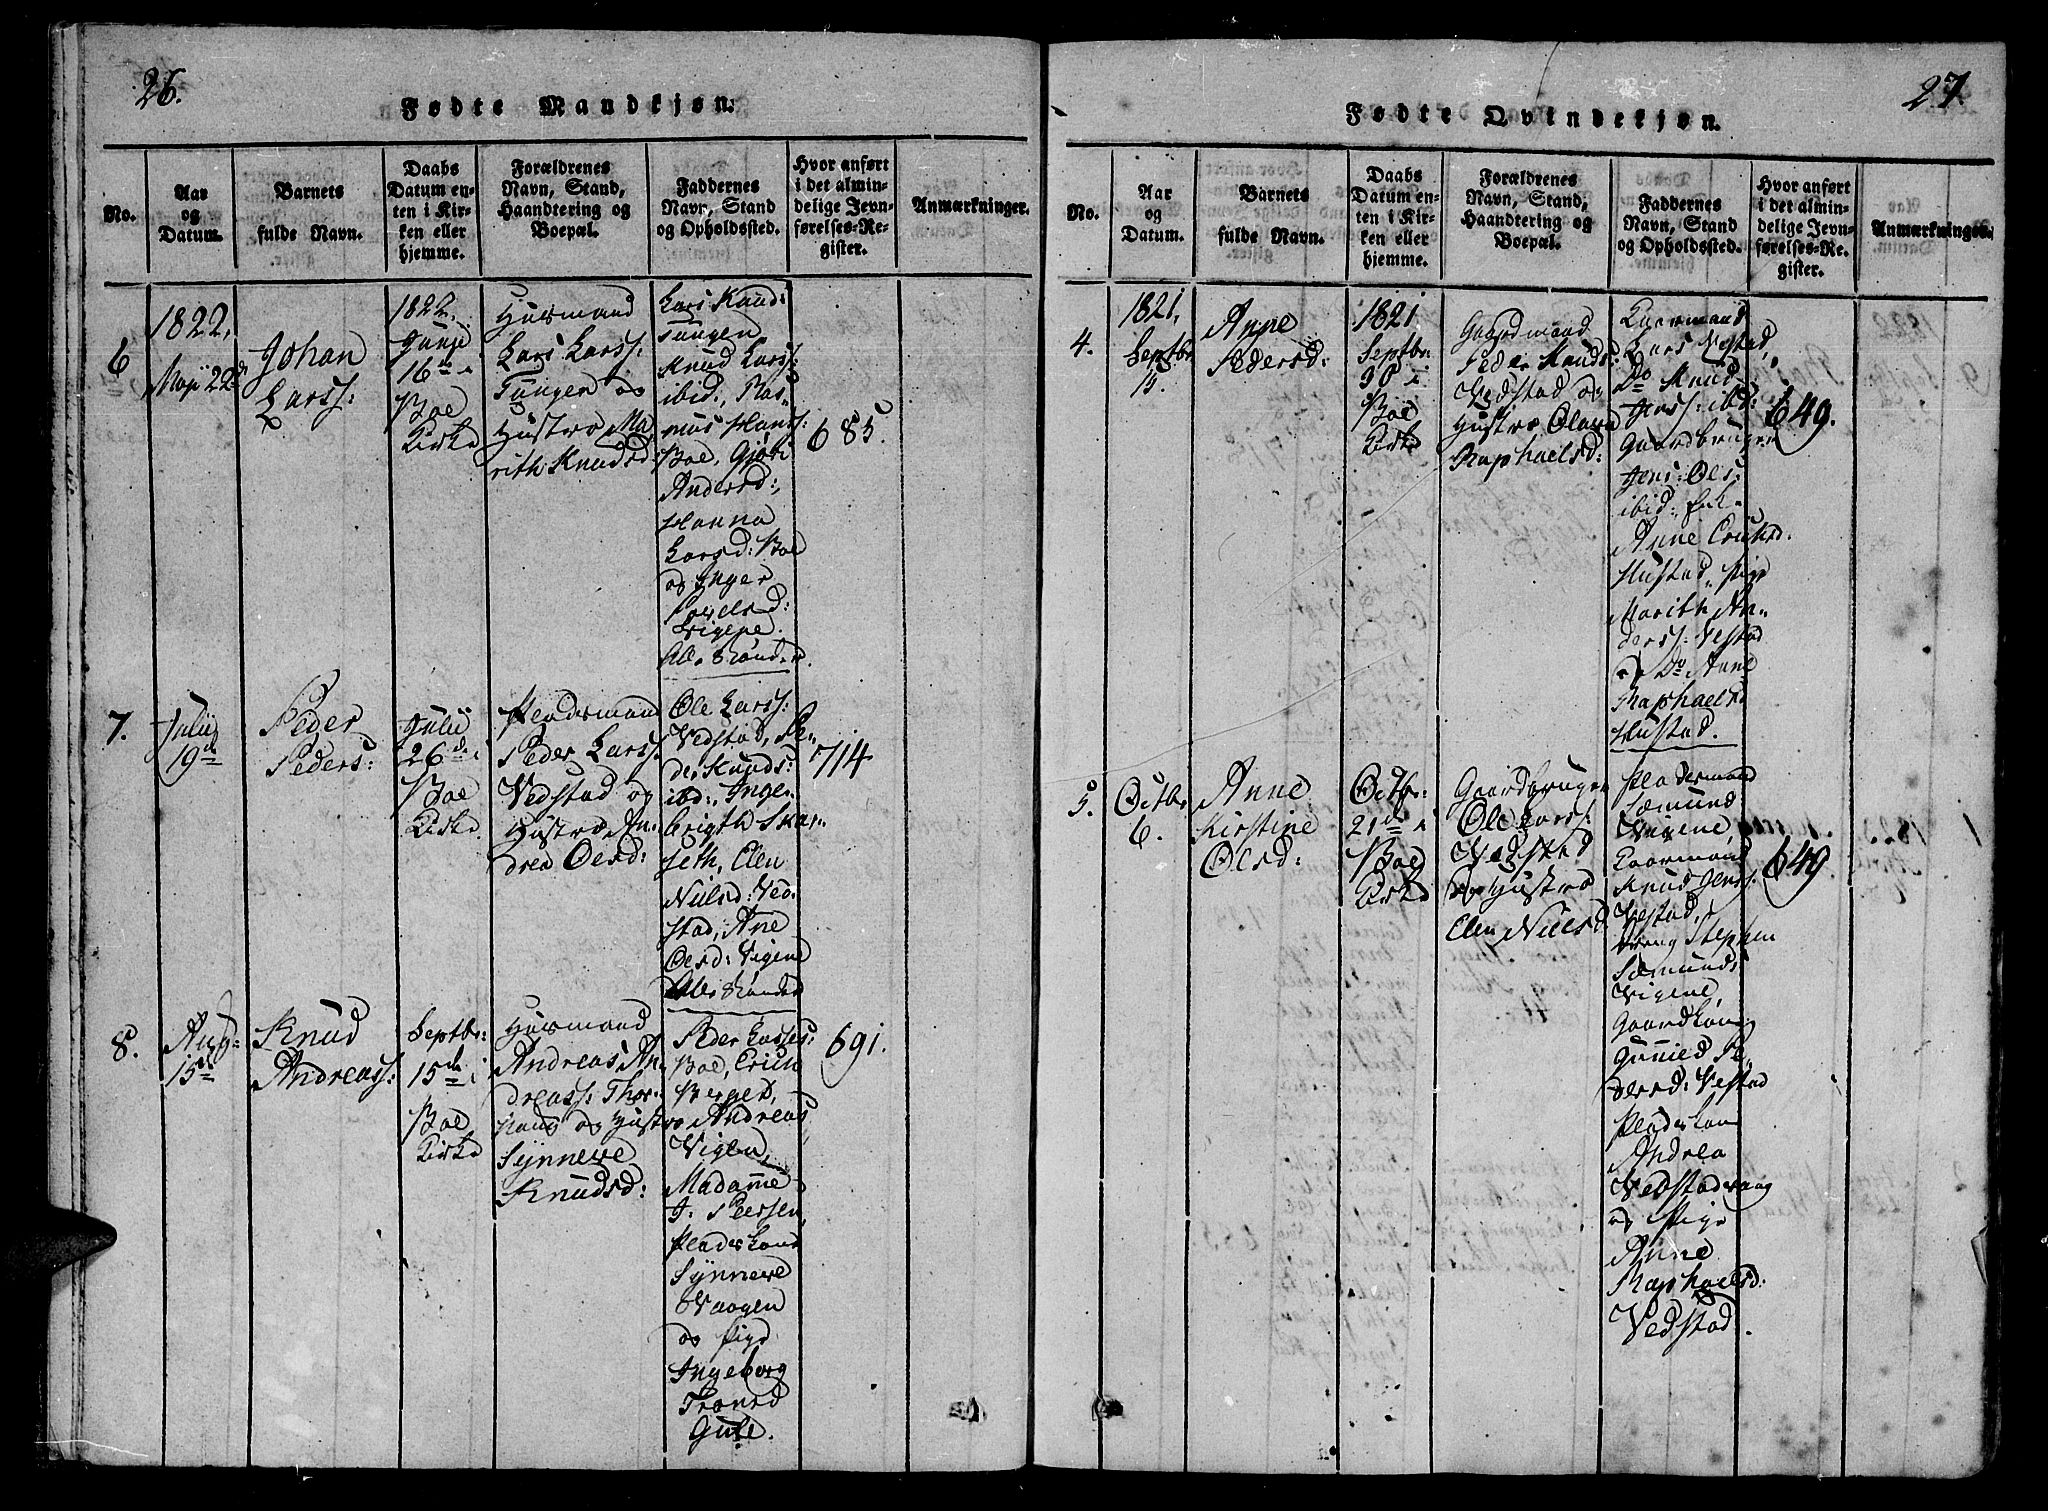 26.
Fødte Mandkjøn.
No.
Aar
og
Datum.
Barnets
fulde Navn.
Daabs
Datum en-
ten i Kir-
ken eller
hjemme.
Forældrenes
Navn, Stand,
Haandtering og
Boepæl.
Faddernes
Navn, Stand
og Opholdssted.
Hvor anført
i det almin-
delige Jevn-
førelses-Re-
gister.
Anmærkninger.
6
1822,
Maji 22d
Johan
Larss:
1822.
Junii
16de i
Boe
Kirke
Huusmand
Lars Larss:
Tangen og
Hustroe Ma
rith Knudsd:
Lars Knud:
Tangen
Knud Larss:
ibid:, Ras-
mus Hans:
Boe, Gjøri
Andersd:,
Hanna
Larsd: Boe
og Inger
Povelsd:
Vigene.
685.
7.
Julii
19de
Peder
Peders:
Julii
26de i
Boe
Kirke.
Pladsmand
Peder Larss.
Vedstad og
Hustroe An-
drea Olsd:
Ole Larss:
Vedstad, Pe-
der Knuds:
ibd:, Inge-
brigth Skar-
seth, Elen
Nielsd: Ved-
stad, Ane
Olsd: Vigene
714
8.
Aug:
15de
Knud
Andreass:
Septbr:
15de i
Boe
Kirke
Huusmand
Andreas An-
dreass: Thor-
haug og Hustroe
Synneve
Knudsd:
Peder Lasses:
Boe, Erich
Berget,
Andreas
Vigen,
Madamme
J. Peersen,
Pladskone
Synneve
Vaagen
og Pige
Ingeborg
Tronsd
Gule.
691.
27
Fødte Qvindekjøn.
No.
Aar
og
Datum.
Barnets
fulde Navn.
Daabs
Datum en-
ten i Kir-
ken eller
hjemme.
Forældrenes
Navn, Stand,
Haandtering og
Boepæl.
Faddernes
Navn, Stand
og Opholdssted.
Hvor anført
i det almin-
delige Jevn-
førelses-Re-
gister.
Anmærkninger.
4.
1821,
Septbr.
Anne
Pedersd:
1821
Septbr:
30 i
Boe
Kirke
Gaardmand
Peder Knuds:
Vedstad og
Hustroe Olava
Raphaelsd:
Kaarmand
Lars Vestad,
Do Knud
Jenss: ibd:
Gaardbruger
Jens Ols:
ibid:
Anne
Hustad, Pige
Marith An-
derss: Vestad
og Do Anne
Raphaelsd
Hustad.
649.
5.
Octbr
6.
Anne
Kirstine
Olsd:
Octbr:
21de i
Boe
Kirke
Gaardbruger
Ole Larss:
Vedstad
og Hustroe
Elen Nielsd
Pladsmand
Sæmund
Vigene,
Kaarmand
Knud Jenss:
Vestad,
Dreng Stephen
Sæmunds
Vigene,
Gaardkone
Gunild Pe-
dersd: Vestad
Pladskone
Andrea
Vedstadvaag
og Pige
Anne
Raphaelsd:
Vedstad.
649